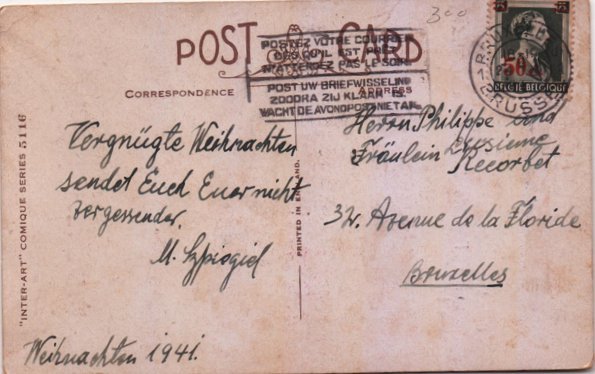 300
POST CARD
POSTEZ VOTRE COURRIER
DÈS QU'IL EST PRÊT
N'ATTENDEZ PAS LE SOIR
POST UW BRIEFWISSELING
ZOODRA ZIJ KLAAR IS
WACHT DE AVONDPOST NIET AF
BRUXELLES
BRUSSEL
50
BELGIE BELGIQUE
CORRESPONDENCE
ADDRESS
Vergnügte Weihnachten
sendet Euch Euer nicht
vergessender.
M. Szpiegiel
Weihnachten 1941.
"INTER-ART" COMIQUE SERIES 5116
PRINTED IN ENGLAND.
Herrn Philippe und
Fräulein Lucienne
Recorbet
32, Avenue de la Floride
Bruxelles